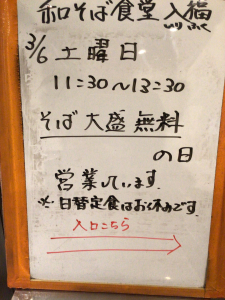 和そば食堂 入福
3/6 土曜日
11:30~13:30
そば大盛無料
の日
営業しています
※日替定食はお休みです。
入口こちら